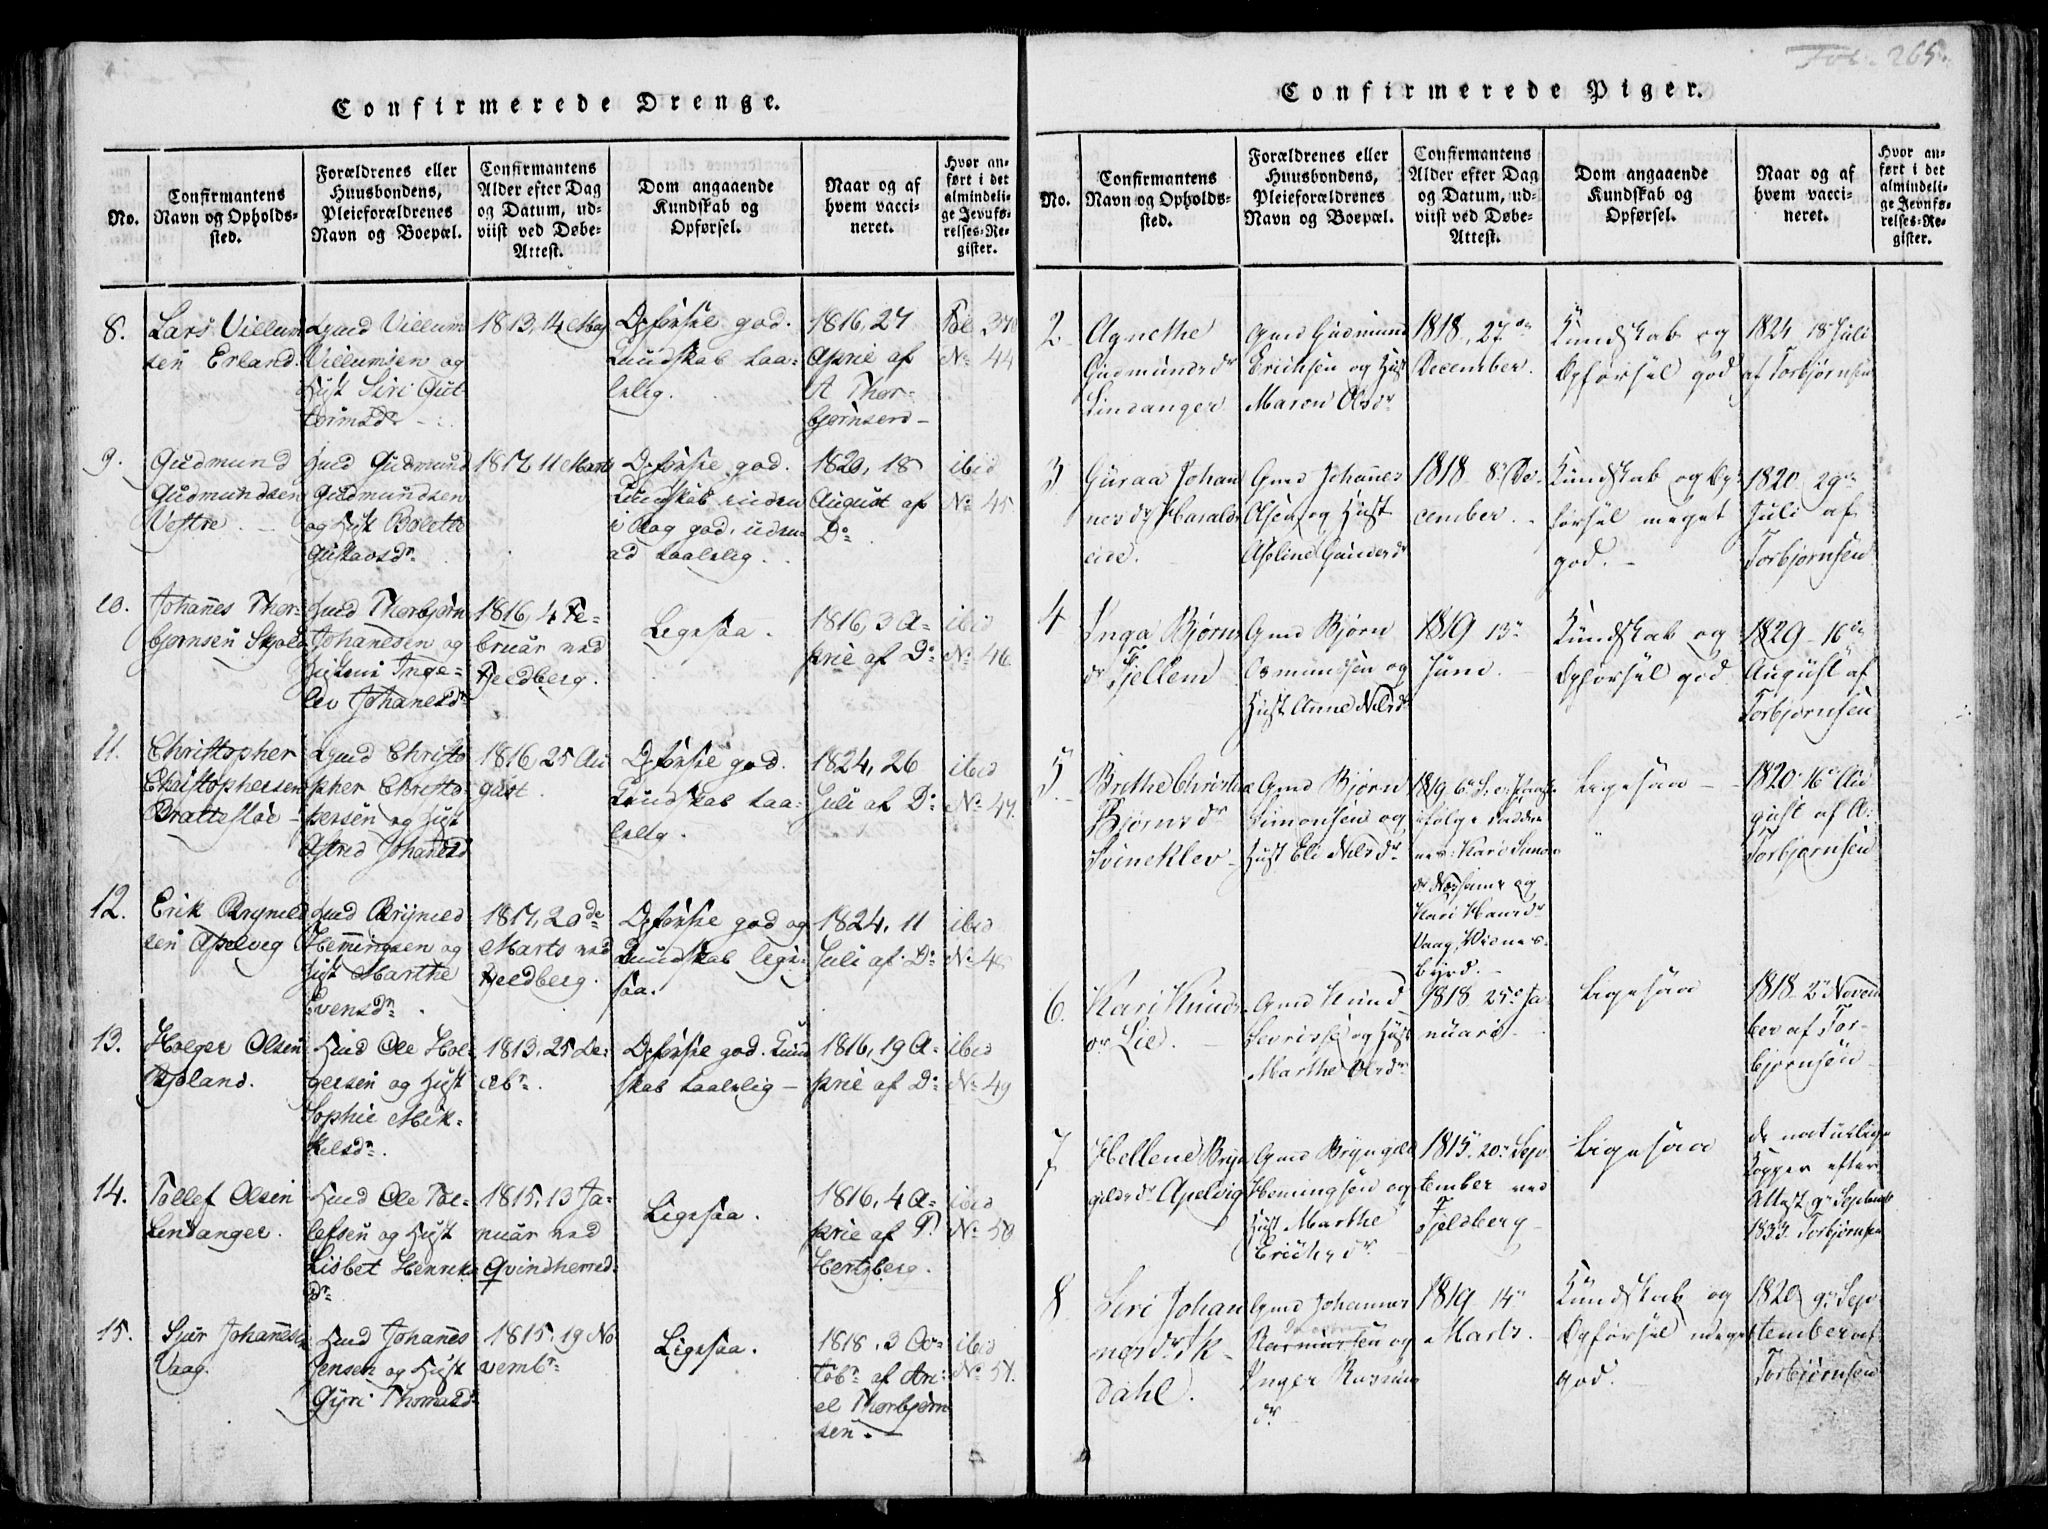 Confirmerede Drenge.
No.
Confirmantens
Navn og Opholds-
sted.
Forældrenes eller
Huusbondens,
Pleieforældrenes
Navn og Boepæl.
Confirmantens
Alder efter Dag
og Datum, ud-
viist ved Døbe-
Attest.
Dom angaaende
Kundskab og
Opførsel.
Naar og af
hvem vacci-
neret.
Hvor an-
ført i det
almindeli-
ge Jevnfø-
relses-Re-
gister.
8.
Lars Villum
sen Erland.
Villum
Villumsen og
Hust Siri Gut
tormsdr
1813, 14 May
Opførsel god.
Kundskab taa-
lelig.
1816, 27
April af
A Thor-
bjørnsen
Fol 370
No 44
9.
Gudmund
Gudmundsen
Vostre.
Gudmund
Gudmundsen
og Hust Bolette
Gustavsdr
1817 11 Marts
Opførsel god.
Kundskab inden
i Bog god, uden-
ad taalelig.
1820, 18
August af
Do
ibid
No 45
10.
Johanes Thor-
bjørnsen Skjold
Thorbjørn
Johanesen og
Inge-
lev Johanesdr
1816, 4 Fe-
bruar ved
Fjeldberg.
Ligesaa.
1816, 3 A-
pril af Do
ibid
No 46
11.
Christopher
Christophersen
Brattestøe
Christo
pher Christo-
phersen og Hust
Astrid Johanesd
1816, 25 Au
gust.
Opførsel god.
Kundskab taa-
lelig.
1824, 26
Juli af Do
ibid
No 47.
12.
Erik Brynild
sen Apelveg
Brynild
Hemingsen og
Hust Marthe
Evensdr
1817, 20de
Marts ved
Fjeldberg.
Opførsel god og
Kundskab lige-
saa.
1824, 11
Juli af Do
ibid
No 48
13.
Holger Olsen
Bjøland.
Ole Hol-
gersen og Hust
Sophie Mik-
kelsdr
1813, 25 De-
cbr.
Opførsel god. Kund
skab taalelig
1816, 19 A-
pril af Do
ibid
No 49
14.
Tollef Olsen
Lindanger.
Ole Tol-
lefsen og Hust
Lisbet Henriks
dr
1815, 13 Ja-
nuar ved
Qvindherred
Ligesaa.
1816, 4 A-
pril af P.
Hertzberg.
ibid
No 50
15.
Sjur Johanesen
Vaag.
Johanes
Jensen og Hust
Gyri Thomasd
1815, 19 No
vembr
Ligesaa.
1818, 3 Oc-
tobr af Ari-
el Thorbjørn
sen.
ibid
No 51.
Fol. 265.
Confirmerede Piger.
No.
Confirmantens
Navn og Opholds-
sted.
Forældrenes eller
Huusbondens,
Pleieforældrenes
Navn og Boepæl.
Confirmantens
Alder efter Dag
og Datum, ud-
viist ved Døbe-
Attest.
Dom angaaende
Kundskab og
Opførsel.
Naar og af
hvem vacci-
neret.
Hvor an-
ført i det
almindeli-
ge Jevnfø-
relses-Re-
gister.
2
Agnethe
Gudmundsdr
Lindanger
Gmd Gudmund
Erichsen og Hust
Maren Olsdr
1818, 27de
December.
Kundskab og
Opførsel god
1824 18 Juli
af Torbjørnsen
3
Guraa Johan
nesdr Haralds
eie.
Gmd Johannes
Olsen og Hust
Aseline Gundersdr
1818 8 De-
cember.
Kundskab og Op-
førsel meget
god.
1820 29de
Juli af
Torbjørnsen
4
Inga Bjørns
dr Fjellem
Gmd Bjørn
Osmundsen og
Hust Anne Nilsdr
1819 13
Juni.
Kundskab og
Opførsel god
1829 16de
August af
Torbjørnsen
5
Brethe Christine
Bjørnsdr
Svineklev
Gmd Bjørn
Simonsen og
Hust Eli Nilsdr
1819
ifølge
Kari Simons
dr
Kari Hansdr
Vaag, Vidnes-
byrd.
Ligesaa
1820 16 Au
gust af A.
Torbjørnsen
6.
Kari Knuds
dr Lie.
Gmd Knud
og Hust
Marthe Olsdr
1818 25 Ja
nuari
Ligesaa
1818 2 Novem
ber af Tor-
bjørnsen
7
Hellene Bryn
gildsdr Apelvig
Gmd Bryngild
Hemingsen og
Hust Marthe
Erichsdr
1815 20 Sep
tember ved
Fjeldberg
Ligesaa
de naturlige
Kopper efter
Attest 9 Septembr
1833 Torbjørnsen
8
Siri Johan
nesdr
dahl.
Gmd Johannes
Rasmussen og
Inger Rasmus
dr
1819 14
Marts.
Kundskab og
Opførsel meget
god.
1820 9 Sep
tember af
Torbjørnsen